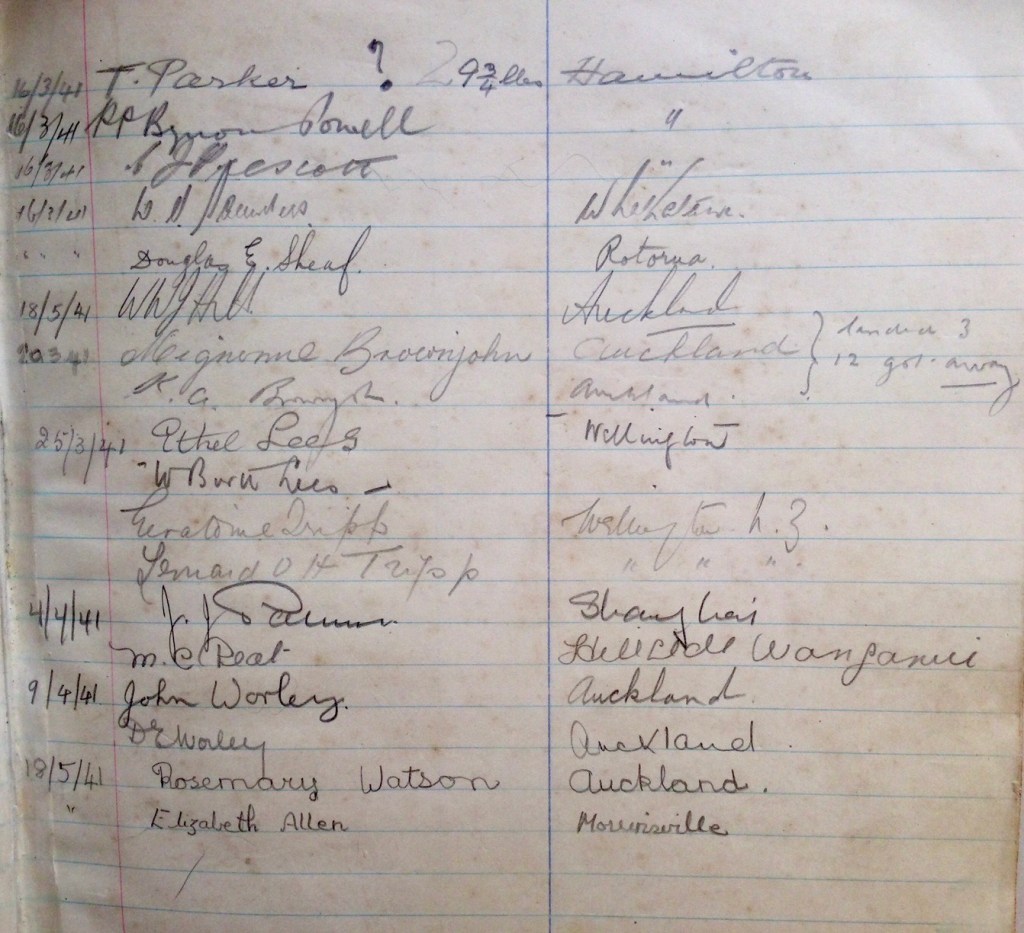 16/3/41 T. Parker ? 2 9 3/4 lbs Hamilton
16/3/41 PP Byron Powell "
16/3/41 J Prescott "
16/3/41 W. N. Saunders. Whakatane.
" " " Douglas E. Sheaf. Rotorua.
18/5/41 Hill Auckland
20 3 41 Mignonne Brownjohn Auckland } landed 3
K. G. Auckland. 12 got away
25/3/41 Ethel Lees Wellington
W Burt Lees —
Tripp Wellington N.Z.
Leonard O H Tripp " " "
4/4/41 J. J. Shanghai
M. C. Peat Wanganui
9/4/41 John Worley. Auckland.
D E Worley Auckland.
18/5/41 Rosemary Watson Auckland.
" Elizabeth Allen Morrinsville